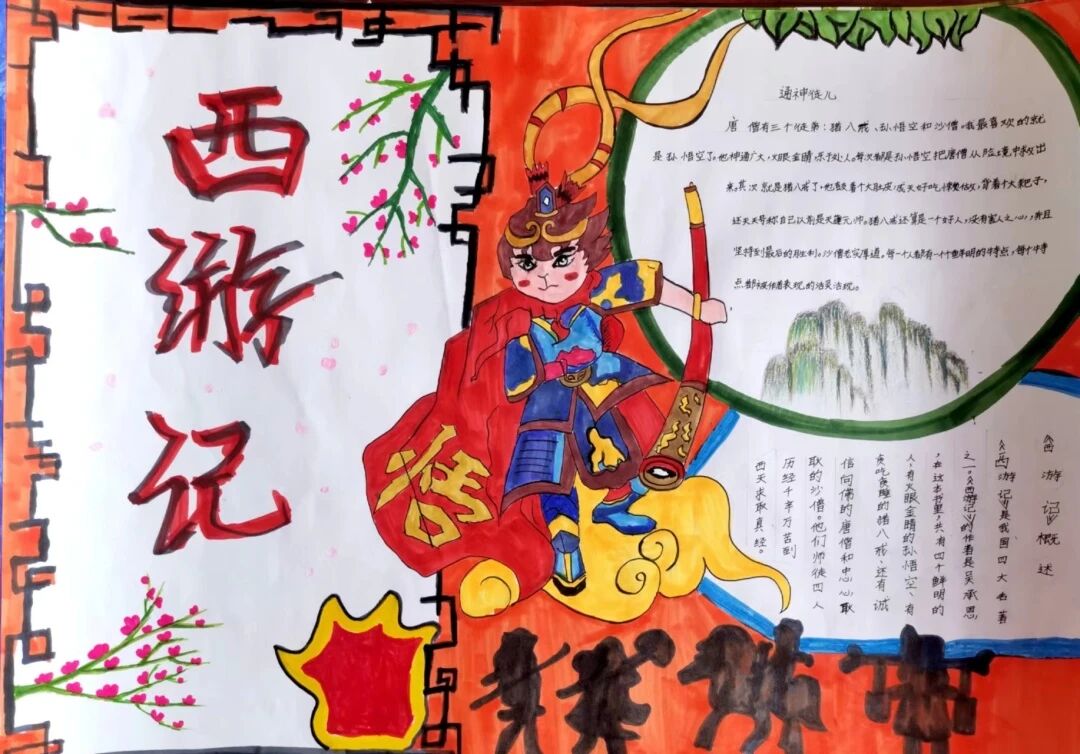 西游记
悟
通神徒儿
唐僧有三个徒弟：猪八戒、孙悟空和沙僧。我最喜欢的就
是孙悟空了。他神通广大，火眼金睛，乐于处人。每次都是孙悟空把唐僧从险境中救出
来。其次就是猪八戒了，他鼓着个大肚皮，成天好吃懒做，背着个大耙子，
还天天号称自己以前是天蓬元帅。猪八戒还算是一个好人，没有害人之心，并且
坚持到最后的胜利。沙僧老实厚道。每一个人都有一个鲜明的特点，每个特
点都被作者表现的活灵活现。
《西游记》概述
《西游记》是我国四大名著
之一。《西游记》的作者是吴承恩
，在这本书里，共有四个鲜明的
人有火眼金睛的孙悟空、有
贪吃贪睡的猪八戒、还有诚
信向佛的唐僧和忠心耿
耿的沙僧。他们师徒四人
历经千辛万苦到
西天求取真经。